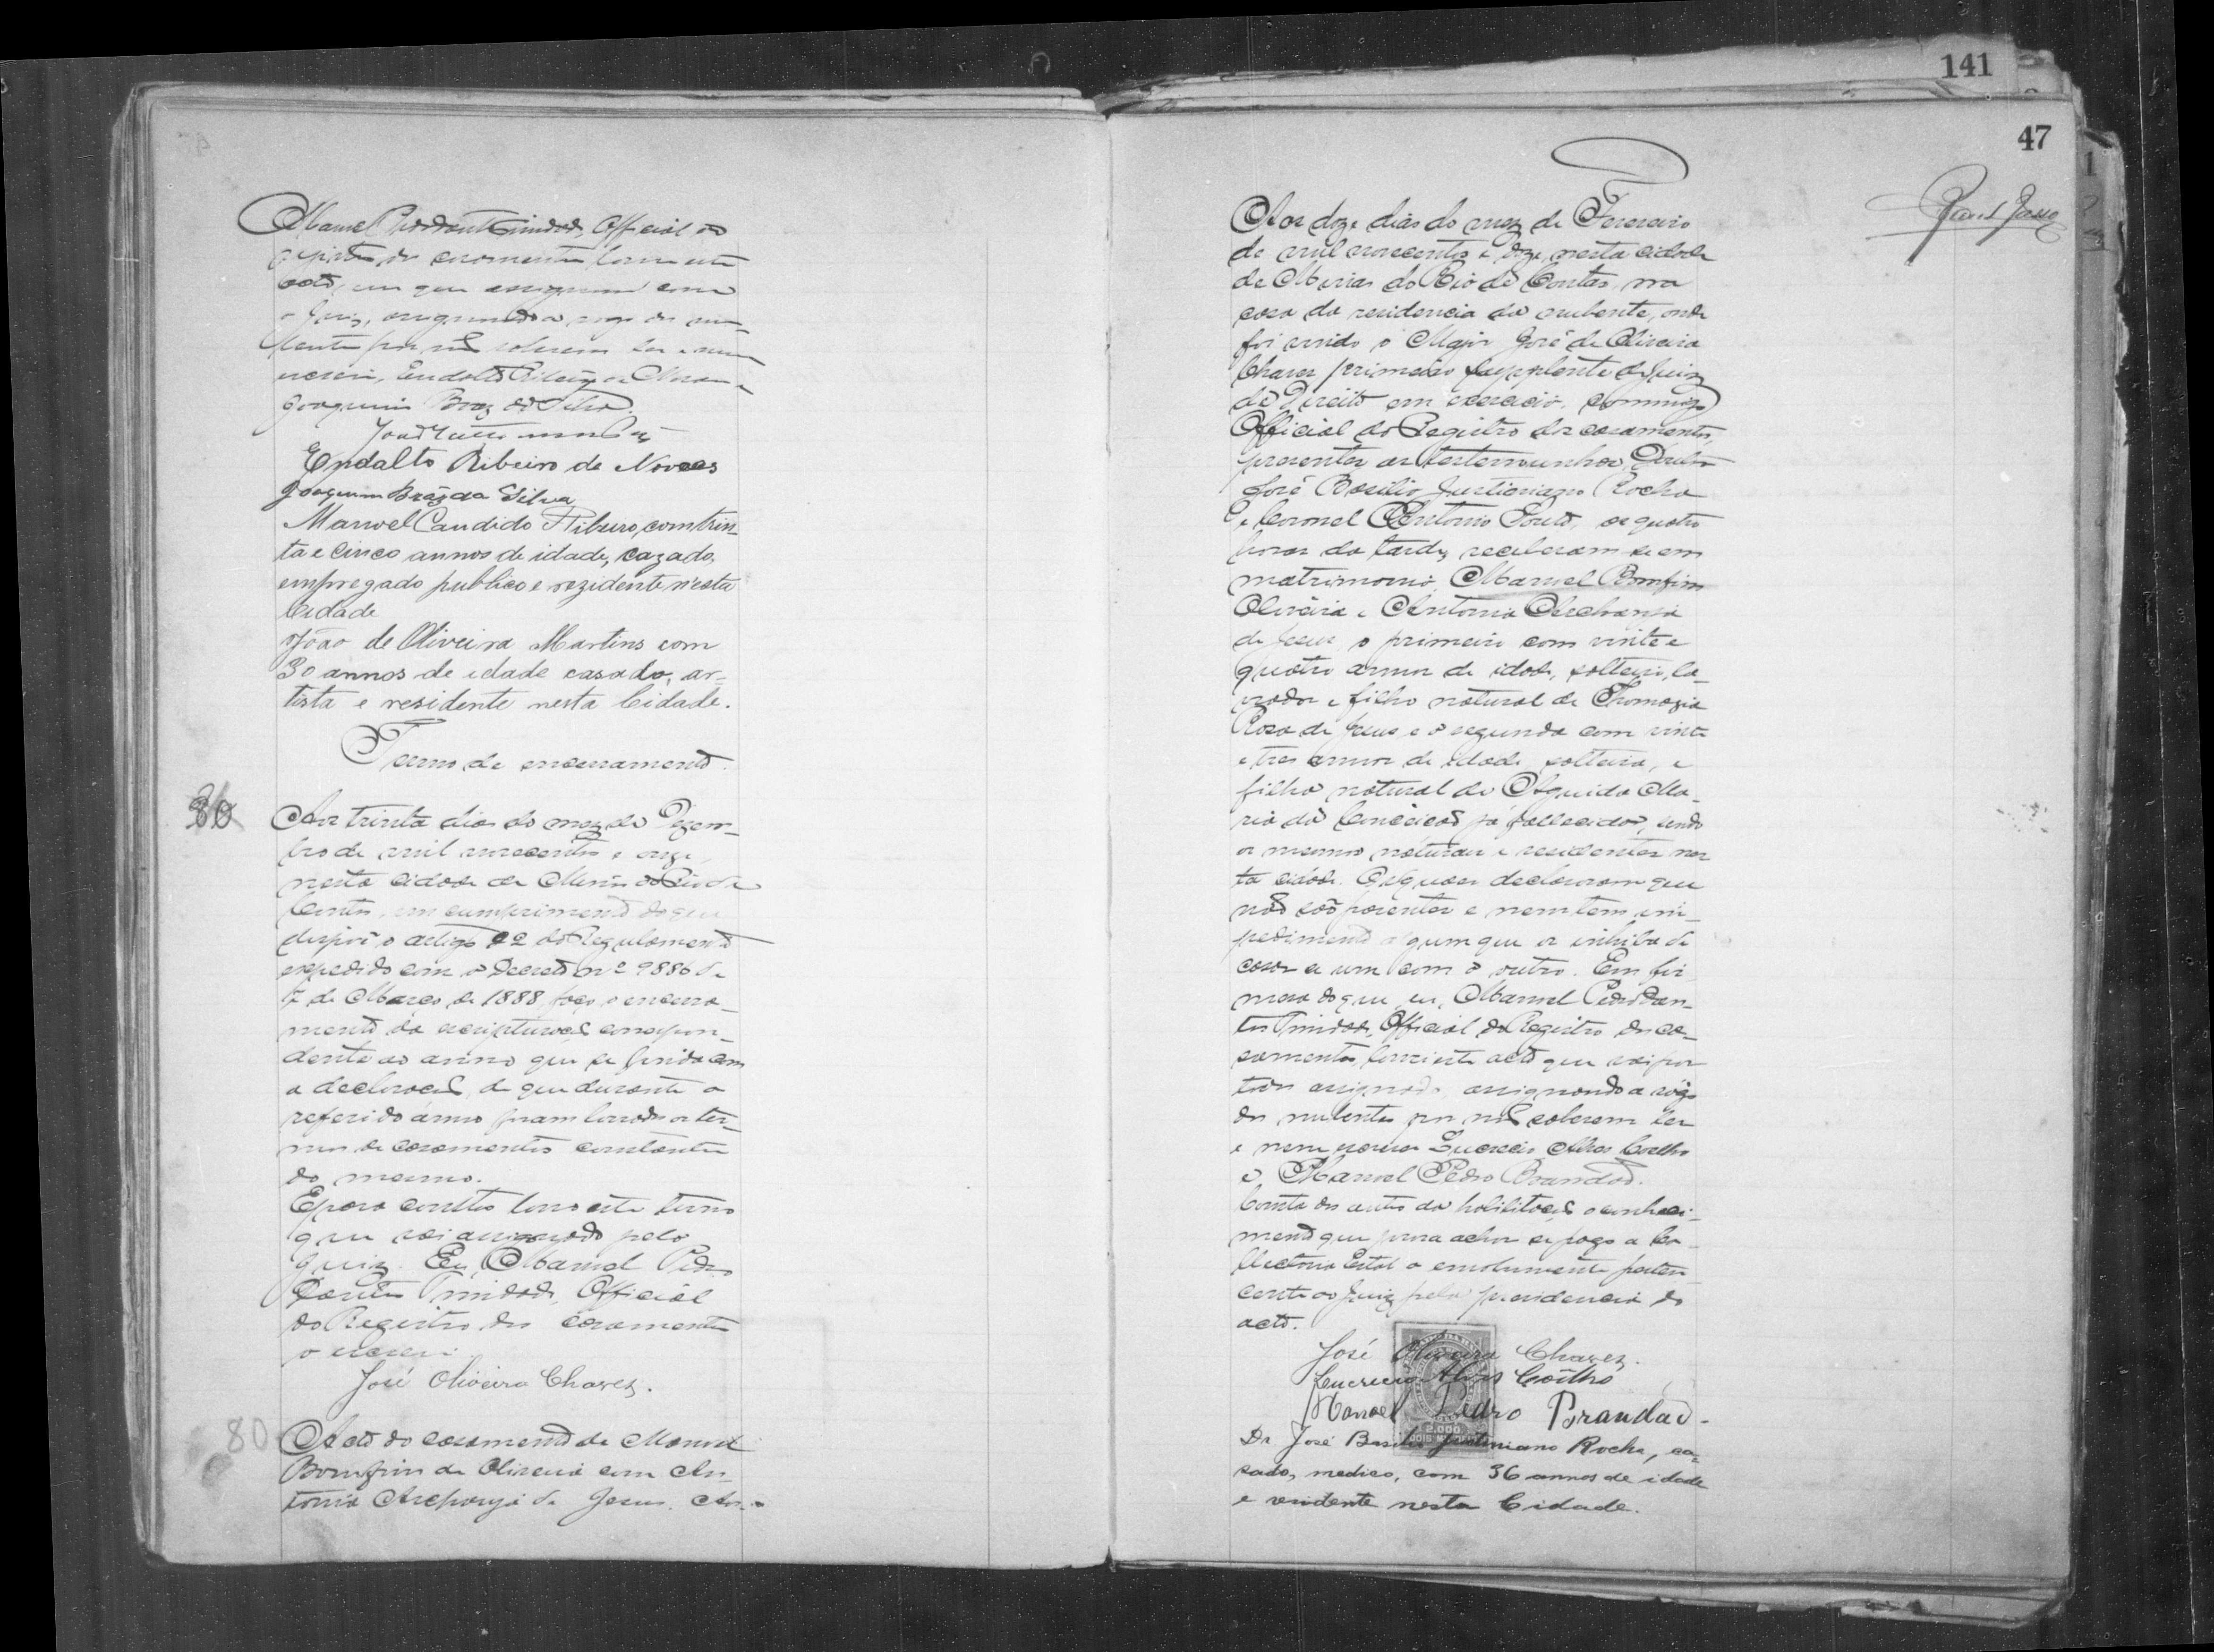 141
47
Manoel Pedro Dantes Trindade, Official do
registro de casamentos lavrei este
acto, em que assignam com
o Juiz, assignando a rogo dos nu-
bentes por não saberem ler e nem
escrever, Eudalto Ribeiro de Novaes e
Joaquim Braz da Silva.
Endalto Ribeiro de Novaes
Joaquim Bráz da Silva
Manoel Candido Ribeiro, com trin-
ta e cinco annos de idade, cazado,
empregado publico e rezidente n'esta
Cidade
João de Oliveira Martins com
30 annos de idade casado, ar-
tista e residente nesta Cidade.
Termo de encerramento.
80
Aos trinta dias do mez de Dezem-
bro de mil novecentos e onze,
nesta cidade de Minas do Rio de
Contas, em cumprimento do que
dispõe o artigo 22 do Regulamento
expedido com o Decreto nº 9886 de
7 de Março de 1888, faço o encerra-
mento da escripturação correspon-
dente ao anno que se finda com
a declaração de que durante o
referido anno foram lavrados os ter-
mos de casamentos constantes
do mesmo.
E para constar lavro este termo
que vai assignado pelo
Juiz. Eu, Manoel Pedro
Dantes Trindade, Official
do Registro dos casamentos
o escrevi.
José Oliveira Chaves.
80
Acto do casamento de Manoel
Bomfim de Oliveira com An-
tonia Archanja de Jesus. Aos
Aos doze dias do mez de Fevereiro
de mil novecentos e doze, nesta cidade
de Minas do Rio de Contas, na
casa da residencia do nubente, onde
foi vindo o Major José de Oliveira
Chaves primeiro supplente do Juiz
de Direito em exercicio, commigo
Official do Registro dos casamentos,
presentes as testemunhas, Doutor
José Basilio Justiniano Rocha
e Coronel Antonio Souto, as quatro
horas da tarde, receberam-se em
matrimonio, Manoel Bomfim
Oliveira e Antonia Archanja
de Jesus o primeiro com vinte e
quatro annos de idade, solteiro, la-
vrador e filho natural de Thomazia
Rosa de Jesus e a segunda com vinte
e tres annos de idade, solteira, e
filha natural de Aguida Ma-
ria da Conceição já fallecida, sendo
os mesmos naturaes e residentes nes
ta cidade. Os quaes declararam que
não são parentes e nem tem im-
pedimento algum que os inhiba de
casar-se um com o outro. Em fir
meza do que eu, Manoel Pedro Dan-
tes Trindade, Official do Registro dos ca-
samentos, lavrei este acto que vai por
todos assignado, assignando a rogo
dos nubentes por não saberem ler
e nem escrever Lucrecio Alves Coelho
e Manoel Pedro Brandão.
Consta dos autos da habilitação o conheci-
mento que prova achar-se pago a Co-
llectoria Estadl o emolumento perten
cente ao Juiz pela presidencia do
acto.
José Oliveira Chaves.
Lucrecio Alves Coêlho
Manoel Pedro Brandão-
2.000
DOIS MIL REIS
Dr José Basilio Justiniano Rocha, ca-
sado, medico, com 36 annos de idade
e residente nesta Cidade.